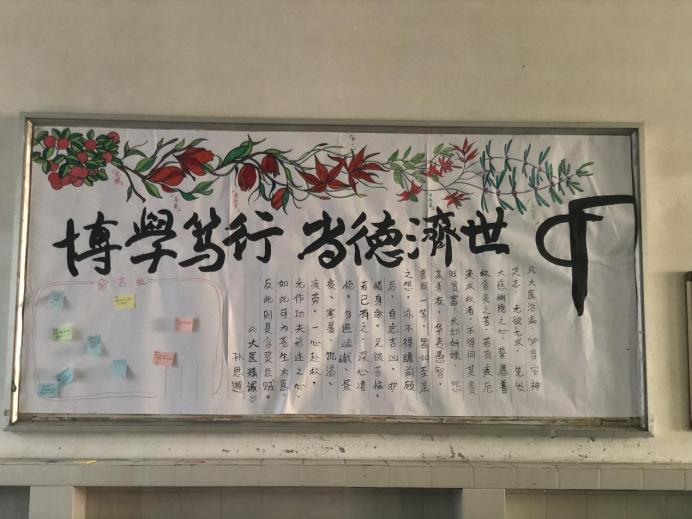 博學篤行 尚德濟世
留言板
凡大医治病,必当安神
定志,无欲无求,先发
大慈恻隐之心,誓愿普
救含灵之苦。若有疾厄
来求救者,不得问其贵
贱贫富,长幼妍媸,怨
亲善友,华夷愚智,
普同一等,皆如至亲
之想,亦不得瞻前顾
后,自虑吉凶,护
惜身命。见彼苦恼,
若己有之,深心凄
怆,勿避险巇、昼
夜、寒暑、饥渴、
疲劳,一心赴救,
无作功夫形迹之心。
如此可为苍生大医,
反此则是含灵巨贼。
《大医精诚》
孙思邈